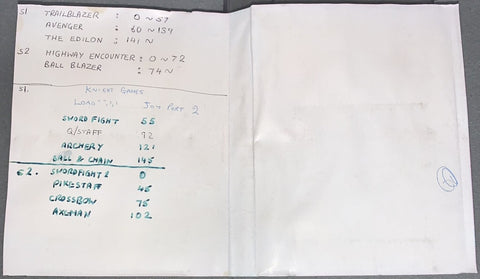 S1. TRAILBLAZER : 0 ~ 57
AVENGER : 60 ~ 137
THE EDILON : 141 ~
S2 HIGHWAY ENCOUNTER : 0 ~ 72
BALL BLAZER : 74 ~
S1. KNIGHT GAMES
LOAD JOY PORT 2
SWORD FIGHT 55
Q/STAFF 92
ARCHERY 121
BALL & CHAIN 145
S2. SWORDFIGHT 2 0
PIKESTAFF 45
CROSSBOW 75
AXEMAN 102